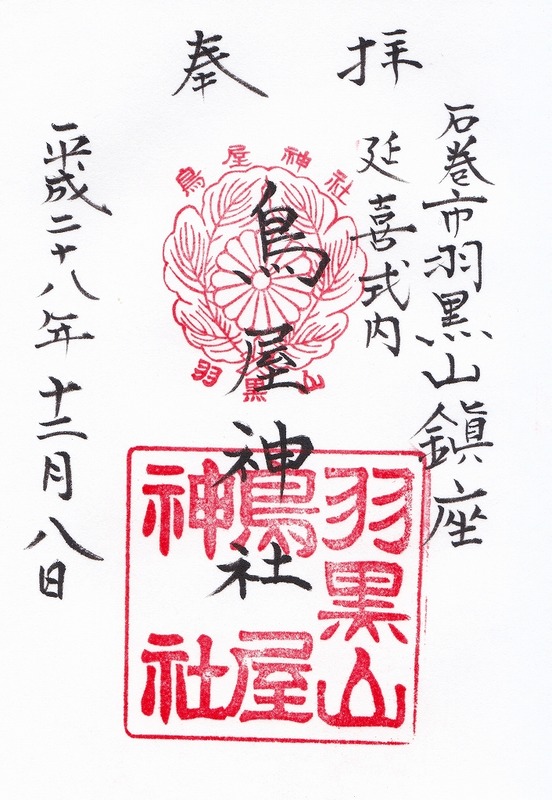 奉拝
石巻市羽黒山鎮座
延喜式内
鳥屋神社
平成二十八年十二月八日
鳥屋神社
羽黒山
羽黒山
鳥屋
神社